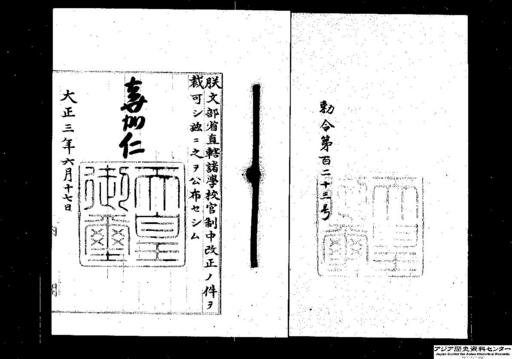 勅令第百二十三号
朕文部省直轄諸学校官制中改正ノ件ヲ
裁可シ玆ニ之ヲ公布セシム
嘉仁
天皇
御璽
大正三年六月十七日
内閣
アジア歴史資料センター
Japan Center for Asian Historical Records